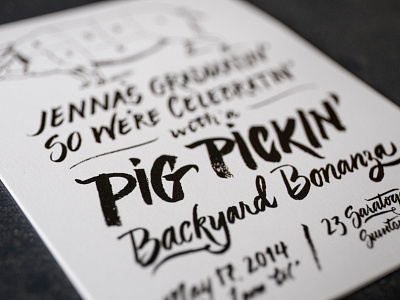 JENNAS GRADUATIN'
SO WE'RE CELEBRATIN'
with a
PIG PICKIN'
Backyard Bonanza
May 17, 2014 | 23 Saratoga